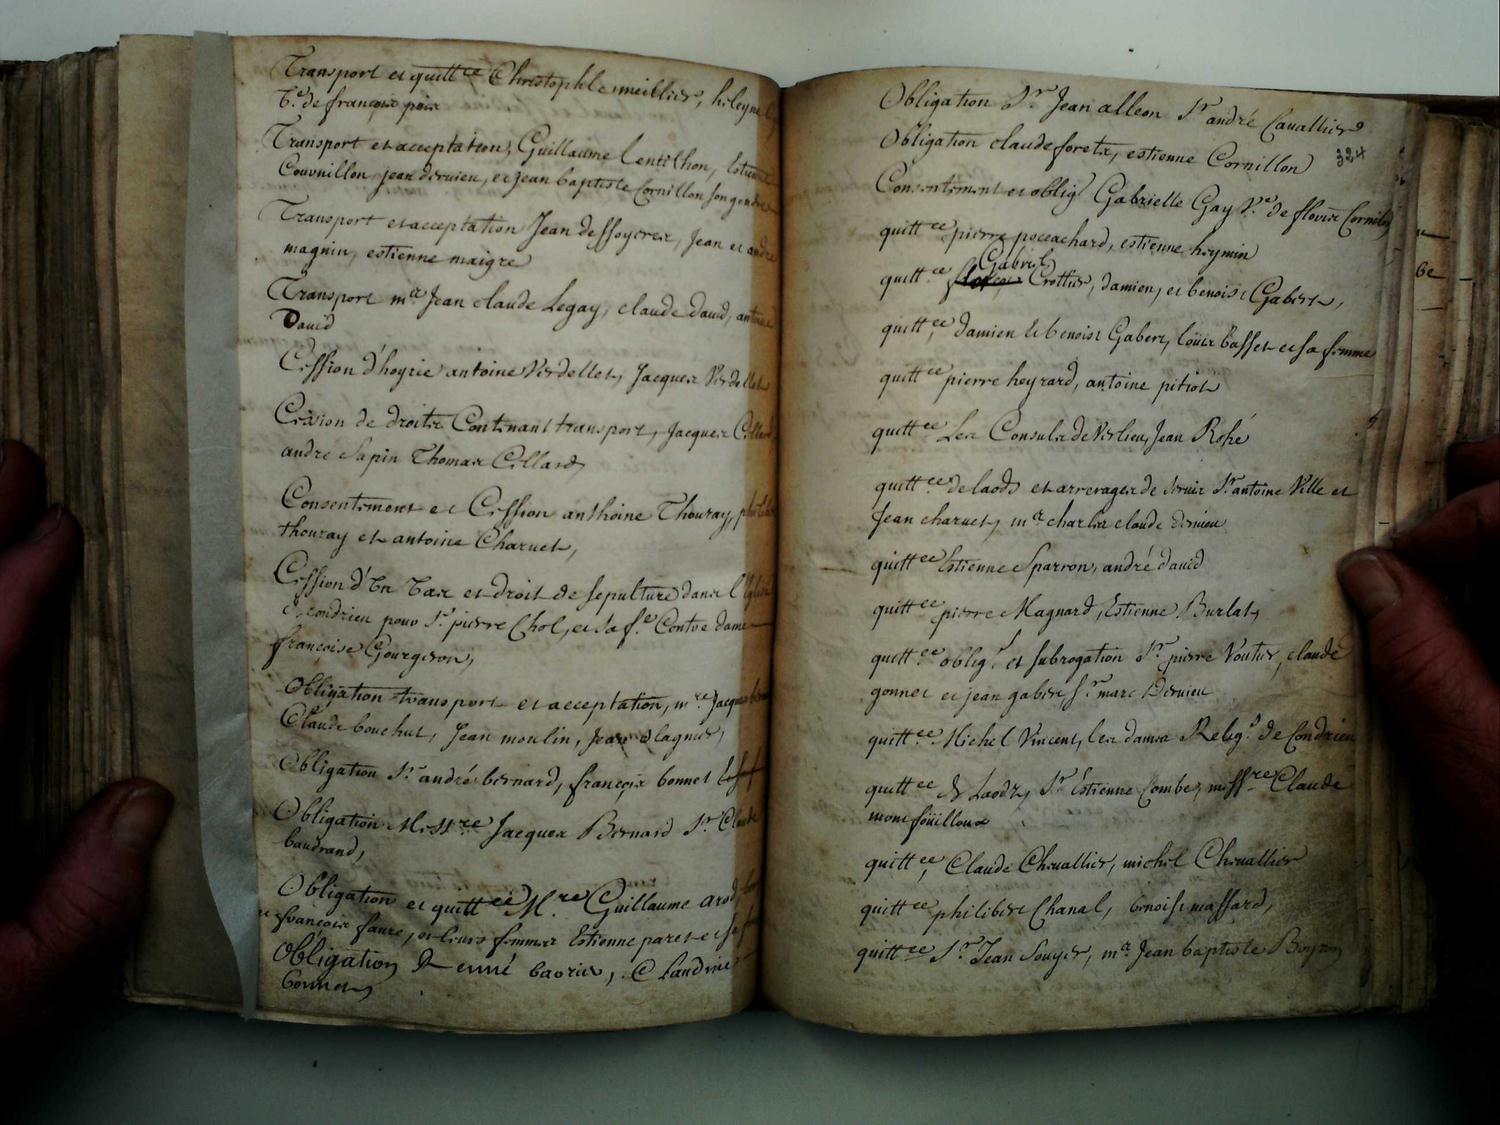 Transport et quittce Christophle meillier, hileyne
Ve de françois poix
Transport et acceptation, Guillaume Lentilhon,
Couvnillon jean dervieu, et jean baptiste Cornillon son gendre
Transport et acceptation Jean deffoyerer, Jean et andré
magnin, estienne maigre
Transport me Jean claude Legay, claude david, antoine
David
Cession d'hoyrie antoine Verdellet, Jacques Verdellet
Cession de droits Contenant transport, Jacques Collard
andré Sapin Thomas Collard
Consentement et Cession anthoine Thouray,
thouray et antoine Charuet,
Cession d'Un Vas et droit de sepulture dans l'Eglise
de Condrieu pour Sr pierre Chol, et sa fe Contre dame
francoise Gourgeron,
Obligation transport et acceptation, mre Jacques
Claude bouchut, Jean moulin, Jean Clagnier,
Obligation Sr andré bernard, françois bonnet
Obligation Messre Jacques Bernard Sr Claude
baudrand,
Obligation et quittce Mre Guillaume arod,
françois faure, et leurs femmes Estienne paret et sa
Obligation Renné bavorier, Claudine
bonnet
Obligation Sr Jean alleon Sr andré Cavallier
324
Obligation claude foretz, estienne Cornillon
Consentement et oblig Gabrielle Gay Ve de floris Cornillon
quittce pierre poceachard, estienne heymin
Gabriel
quittce Crottier, damien, et benoist Gabert,
quittce damien et benoist Gabert, loüis basset et sa femme
quittce pierre heyrard, antoine pitiot
quittce Les Consuls de Verlieu, Jean Rohé
quittce de laods et arrerages de servis Sr antoine Ville et
Jean charuet, me charles claude dervieu
quittce Estienne Sparron, andré david
quittce pierre Magnard, Estienne Burlat,
quittce obligt et subrogation Sr pierre Voutier, claude
gonnet et jean gabert, Sr marc Dervieu
quittce Michel Vincent, les dames Religs de Condrieu
quittce de Laods, Sr Estienne Combe, messre Claude
monfouilloux
quittce, Claude Chevallier, michel Chevallier
quittce philibert Chanal, benoist massard,
quittce Sr Jean Souyer, me Jean baptiste Boyron